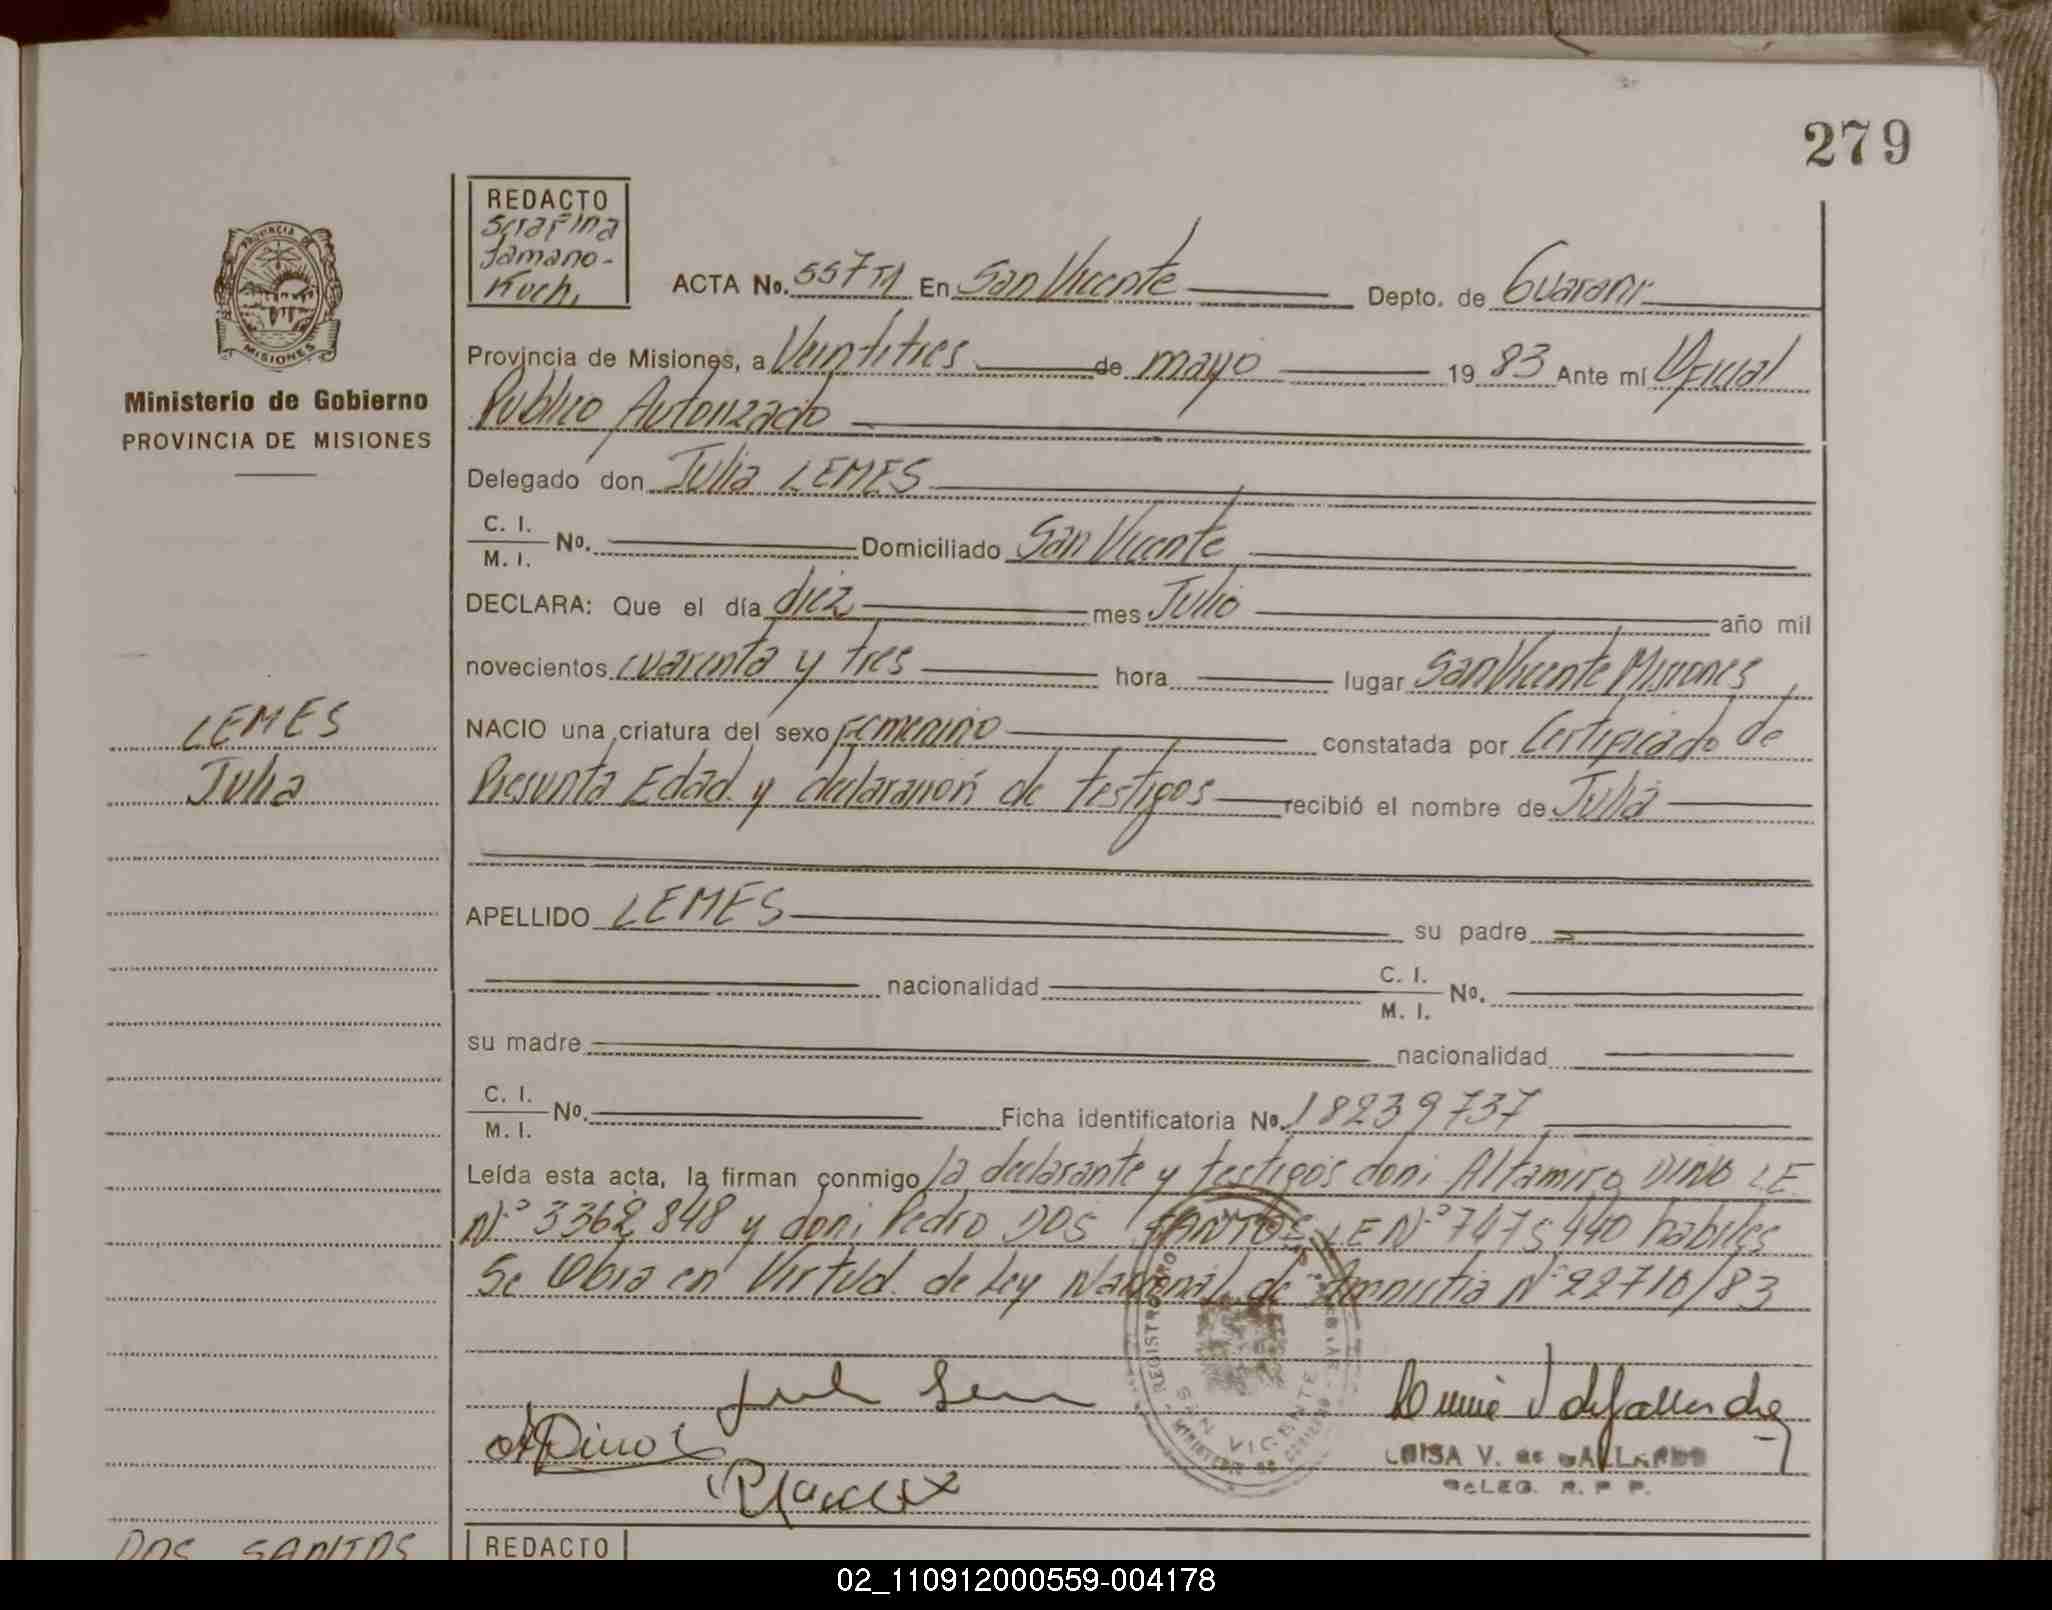 279
REDACTO
Serafina
Jamano-
Kuch,
ACTA No. 557 TI En San Vicente Depto. de Guarani
PROVINCIA DE
MISIONES
Provincia de Misiones, a Veintitres de mayo 1983 Ante mí Oficial
Publico Autorizado
Ministerio de Gobierno
PROVINCIA DE MISIONES
Delegado don Julia LEMES
C. I.
M. I. No. Domiciliado San Vicente
DECLARA: Que el día diez mes Julio año mil
novecientos cuarenta y tres hora lugar San Vicente Misiones
LEMES
Julia
NACIO una criatura del sexo Femenino constatada por Certificado de
Presunta Edad y declaración de testigos recibió el nombre de Julia
APELLIDO LEMES su padre
nacionalidad C. I.
M. I. No.
su madre nacionalidad
C. I.
M. I. No. Ficha identificatoria No. 18239737
Leída esta acta, la firman conmigo la declarante y testigos don: Altamiro DINO LE
Nº 3362848 y don: Pedro DOS SANTOS LE Nº 7475440 habiles
Se Obra en Virtud de Ley Nacional de Amnistia Nº 22710/83
REGISTRO
SAN VICENTE
A Dino
LUISA V. de GALLARDO
DELEG. R. P. P.
DOS SANTOS
REDACTO
02_110912000559-004178